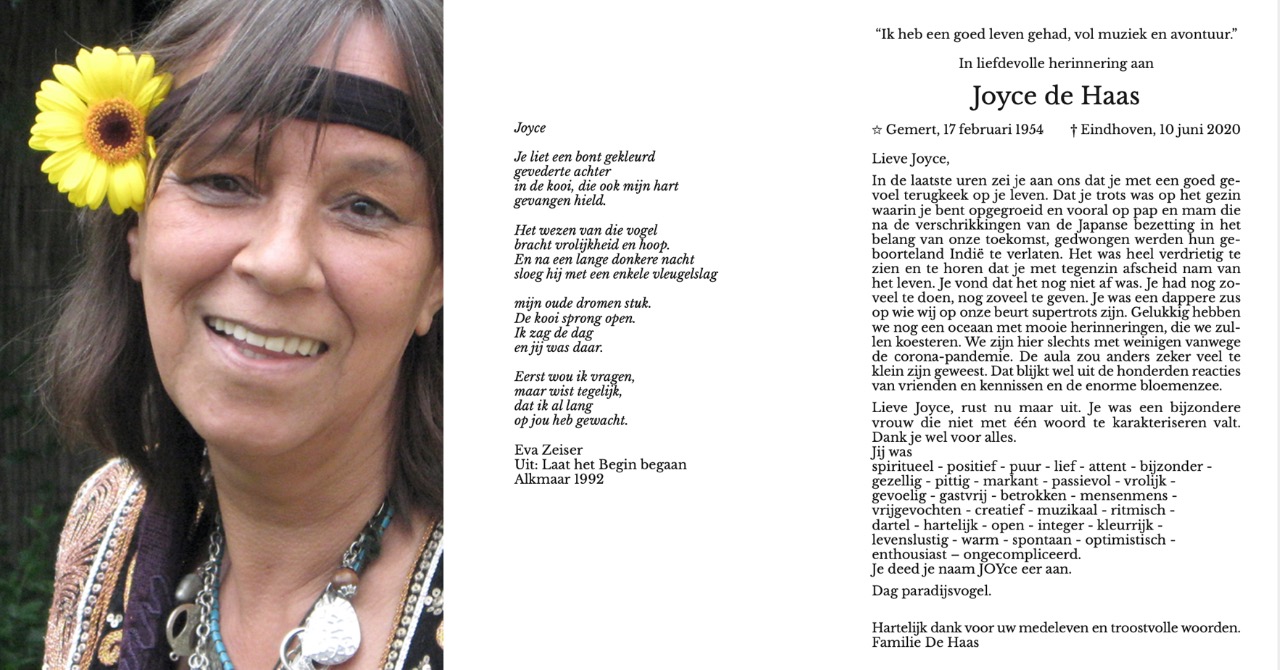 Joyce
Je liet een bont gekleurd
gevederte achter
in de kooi, die ook mijn hart
gevangen hield.
Het wezen van die vogel
bracht vrolijkheid en hoop.
En na een lange donkere nacht
sloeg hij met een enkele vleugelslag
mijn oude dromen stuk.
De kooi sprong open.
Ik zag de dag
en jij was daar.
Eerst wou ik vragen,
maar wist tegelijk,
dat ik al lang
op jou heb gewacht.
Eva Zeiser
Uit: Laat het Begin begaan
Alkmaar 1992
“Ik heb een goed leven gehad, vol muziek en avontuur.”
In liefdevolle herinnering aan
Joyce de Haas
☆ Gemert, 17 februari 1954 † Eindhoven, 10 juni 2020
Lieve Joyce,
In de laatste uren zei je aan ons dat je met een goed ge-
voel terugkeek op je leven. Dat je trots was op het gezin
waarin je bent opgegroeid en vooral op pap en mam die
na de verschrikkingen van de Japanse bezetting in het
belang van onze toekomst, gedwongen werden hun ge-
boorteland Indië te verlaten. Het was heel verdrietig te
zien en te horen dat je met tegenzin afscheid nam van
het leven. Je vond dat het nog niet af was. Je had nog zo-
veel te doen, nog zoveel te geven. Je was een dappere zus
op wie wij op onze beurt supertrots zijn. Gelukkig hebben
we nog een oceaan met mooie herinneringen, die we zul-
len koesteren. We zijn hier slechts met weinigen vanwege
de corona-pandemie. De aula zou anders zeker veel te
klein zijn geweest. Dat blijkt wel uit de honderden reacties
van vrienden en kennissen en de enorme bloemenzee.
Lieve Joyce, rust nu maar uit. Je was een bijzondere
vrouw die niet met één woord te karakteriseren valt.
Dank je wel voor alles.
Jij was
spiritueel - positief - puur - lief - attent - bijzonder -
gezellig - pittig - markant - passievol - vrolijk -
gevoelig - gastvrij - betrokken - mensenmens -
vrijgevochten - creatief - muzikaal - ritmisch -
dartel - hartelijk - open - integer - kleurrijk -
levenslustig - warm - spontaan - optimistisch -
enthousiast – ongecompliceerd.
Je deed je naam JOYce eer aan.
Dag paradijsvogel.
Hartelijk dank voor uw medeleven en troostvolle woorden.
Familie De Haas